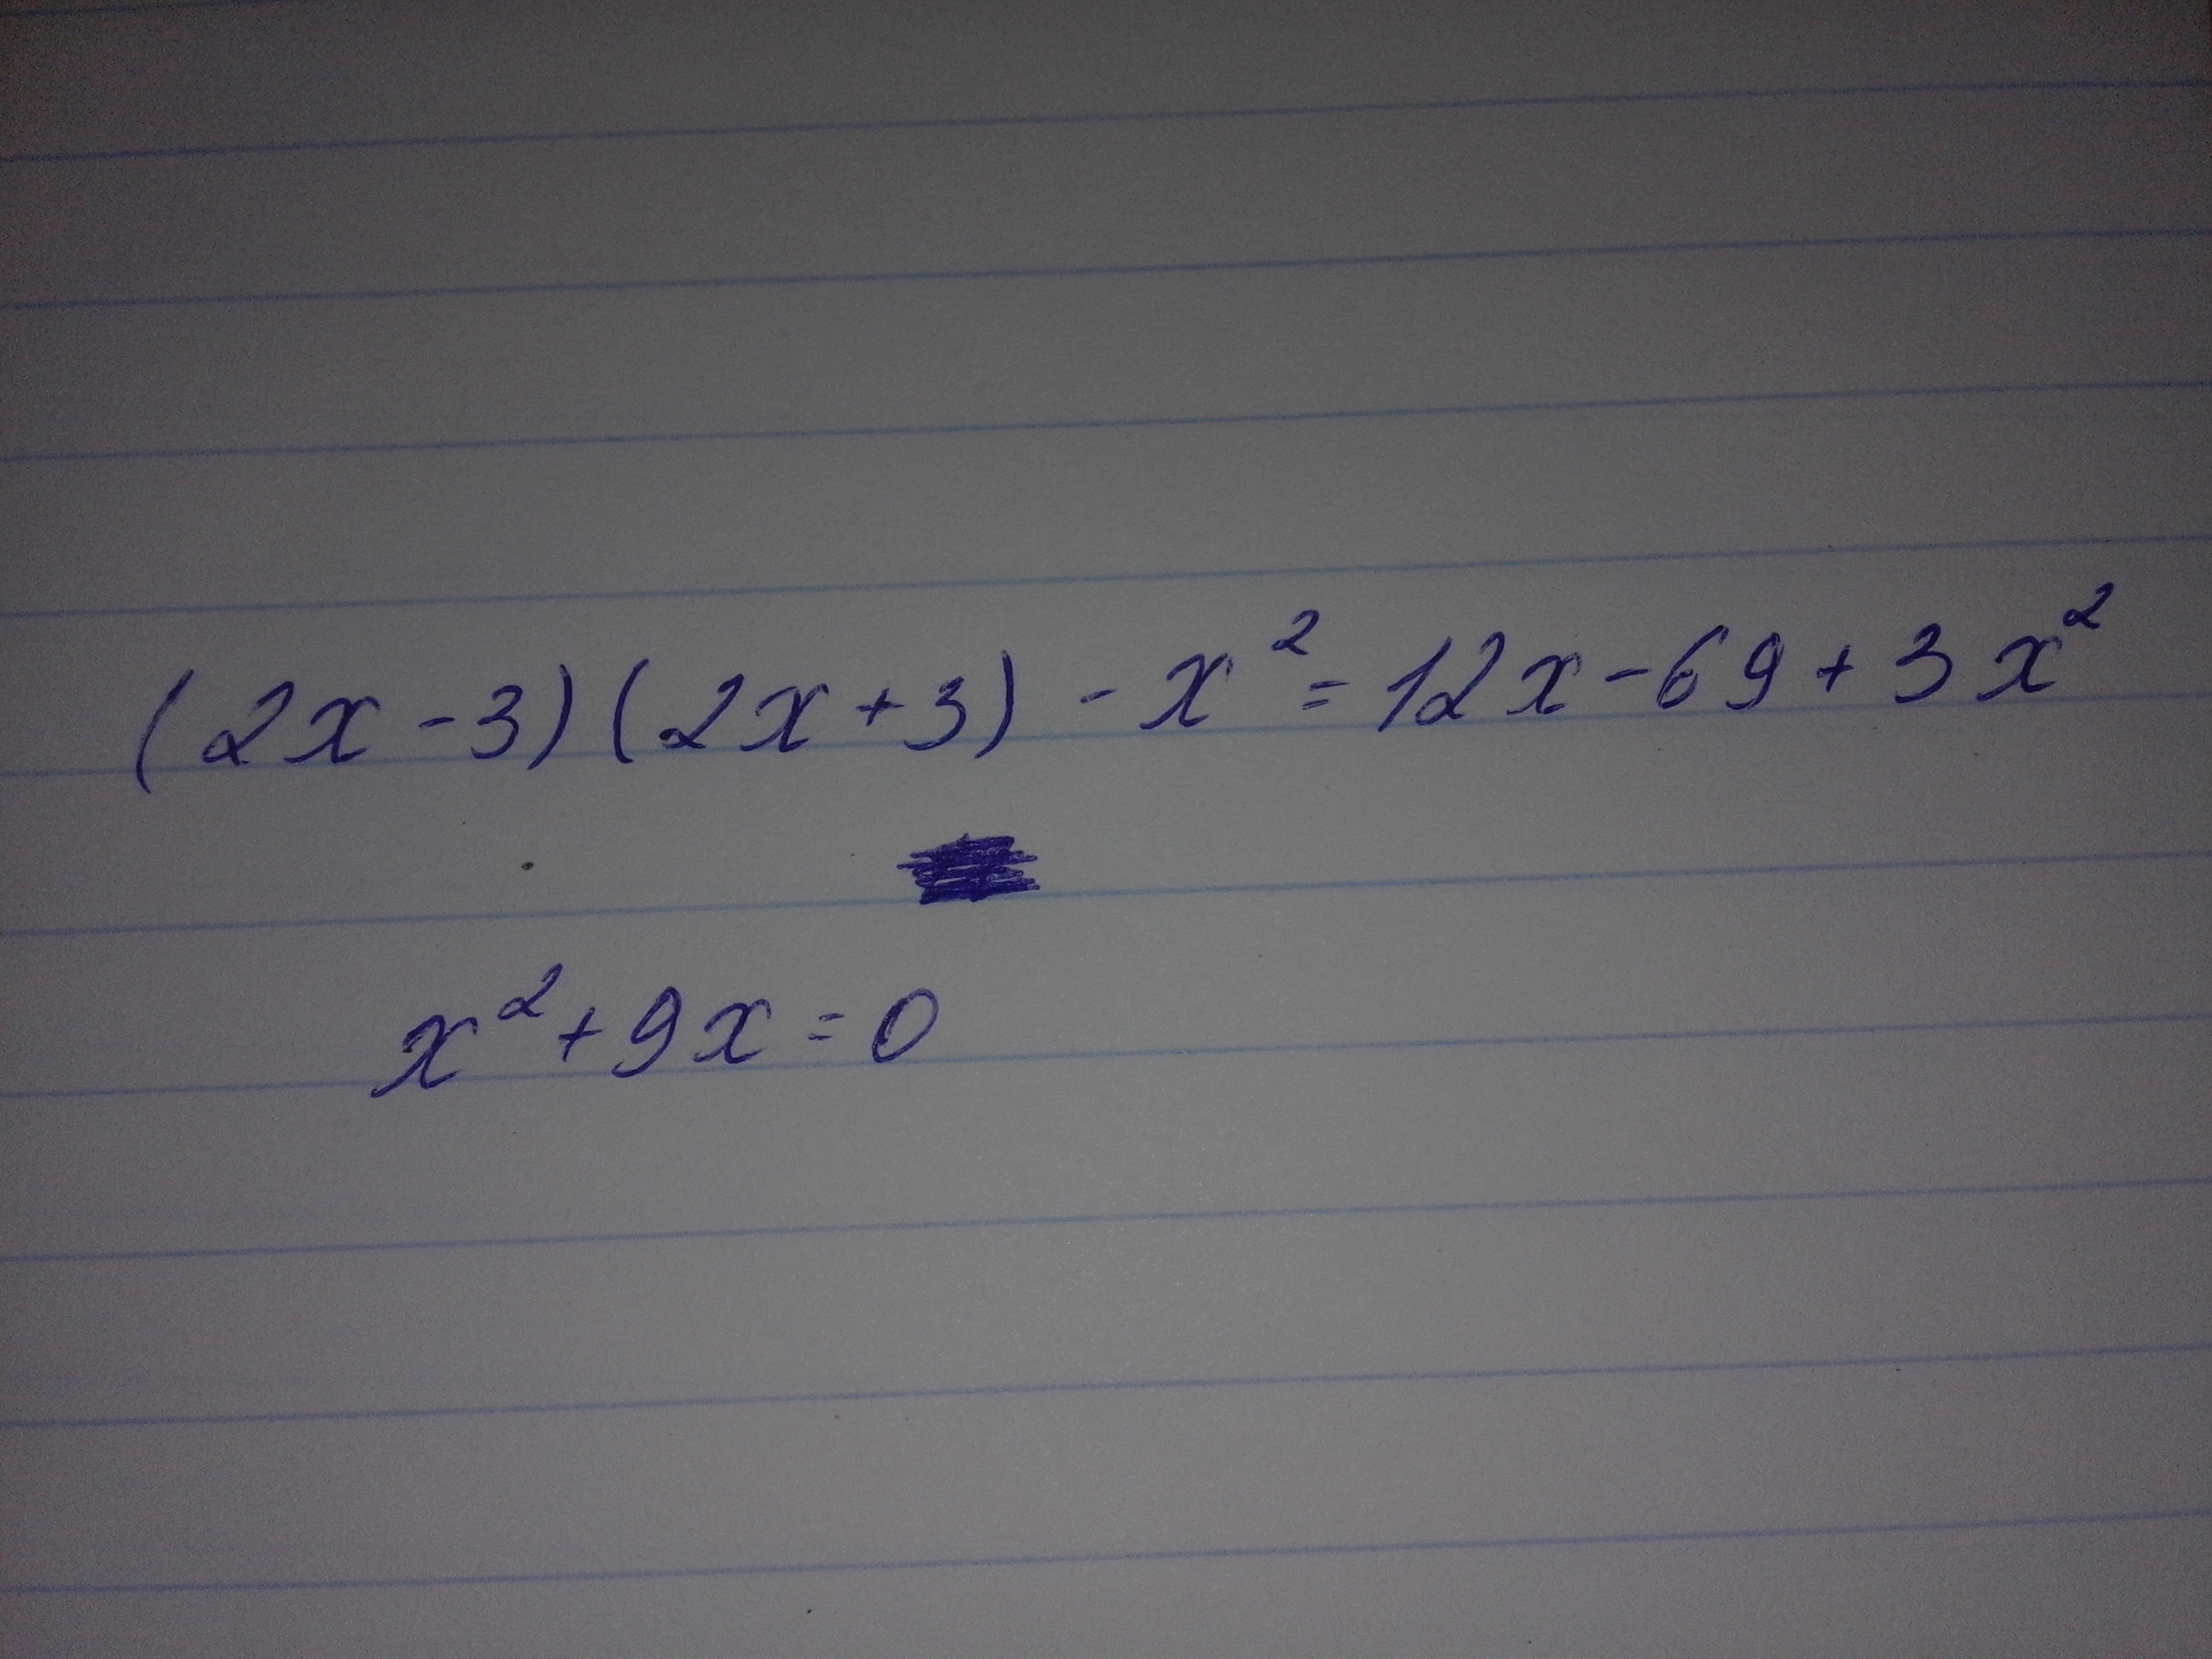 (2x-3)(2x+3)-x²=12x-69+3x²
x²+9x=0